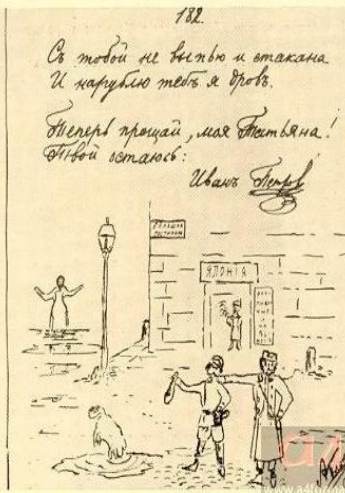 182.
Съ тобой не выпью и стакана
И нарублю тебѣ я дровъ.
Теперь прощай, моя Татьяна!
Твой остаюсь:
Иванъ Петров
ЯПОНІЯ
www.a4format